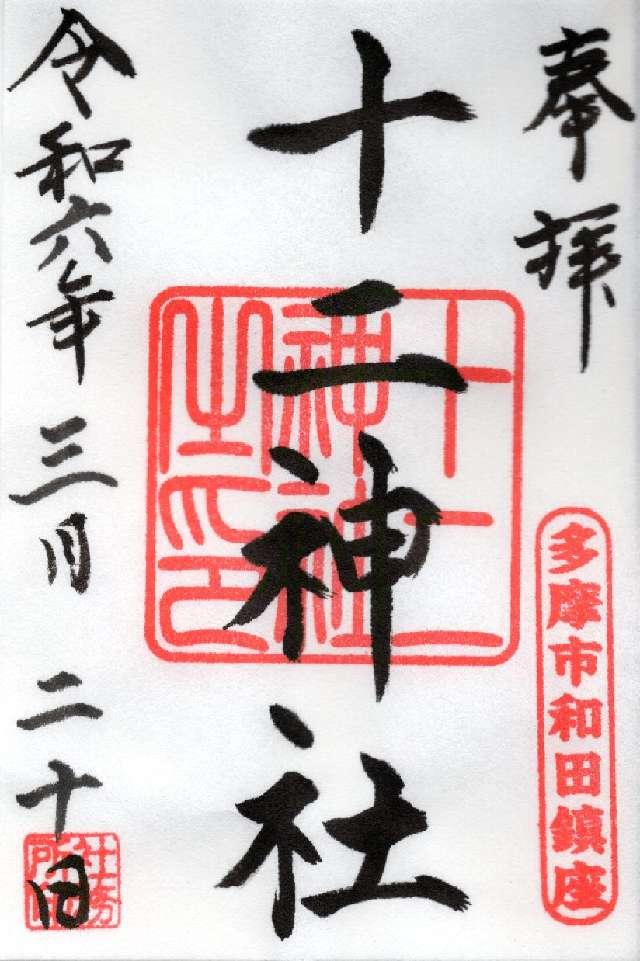 奉拝
多摩市和田鎮座
十二神社
十二
神社
之印
令和六年三月二十日
社務
所印